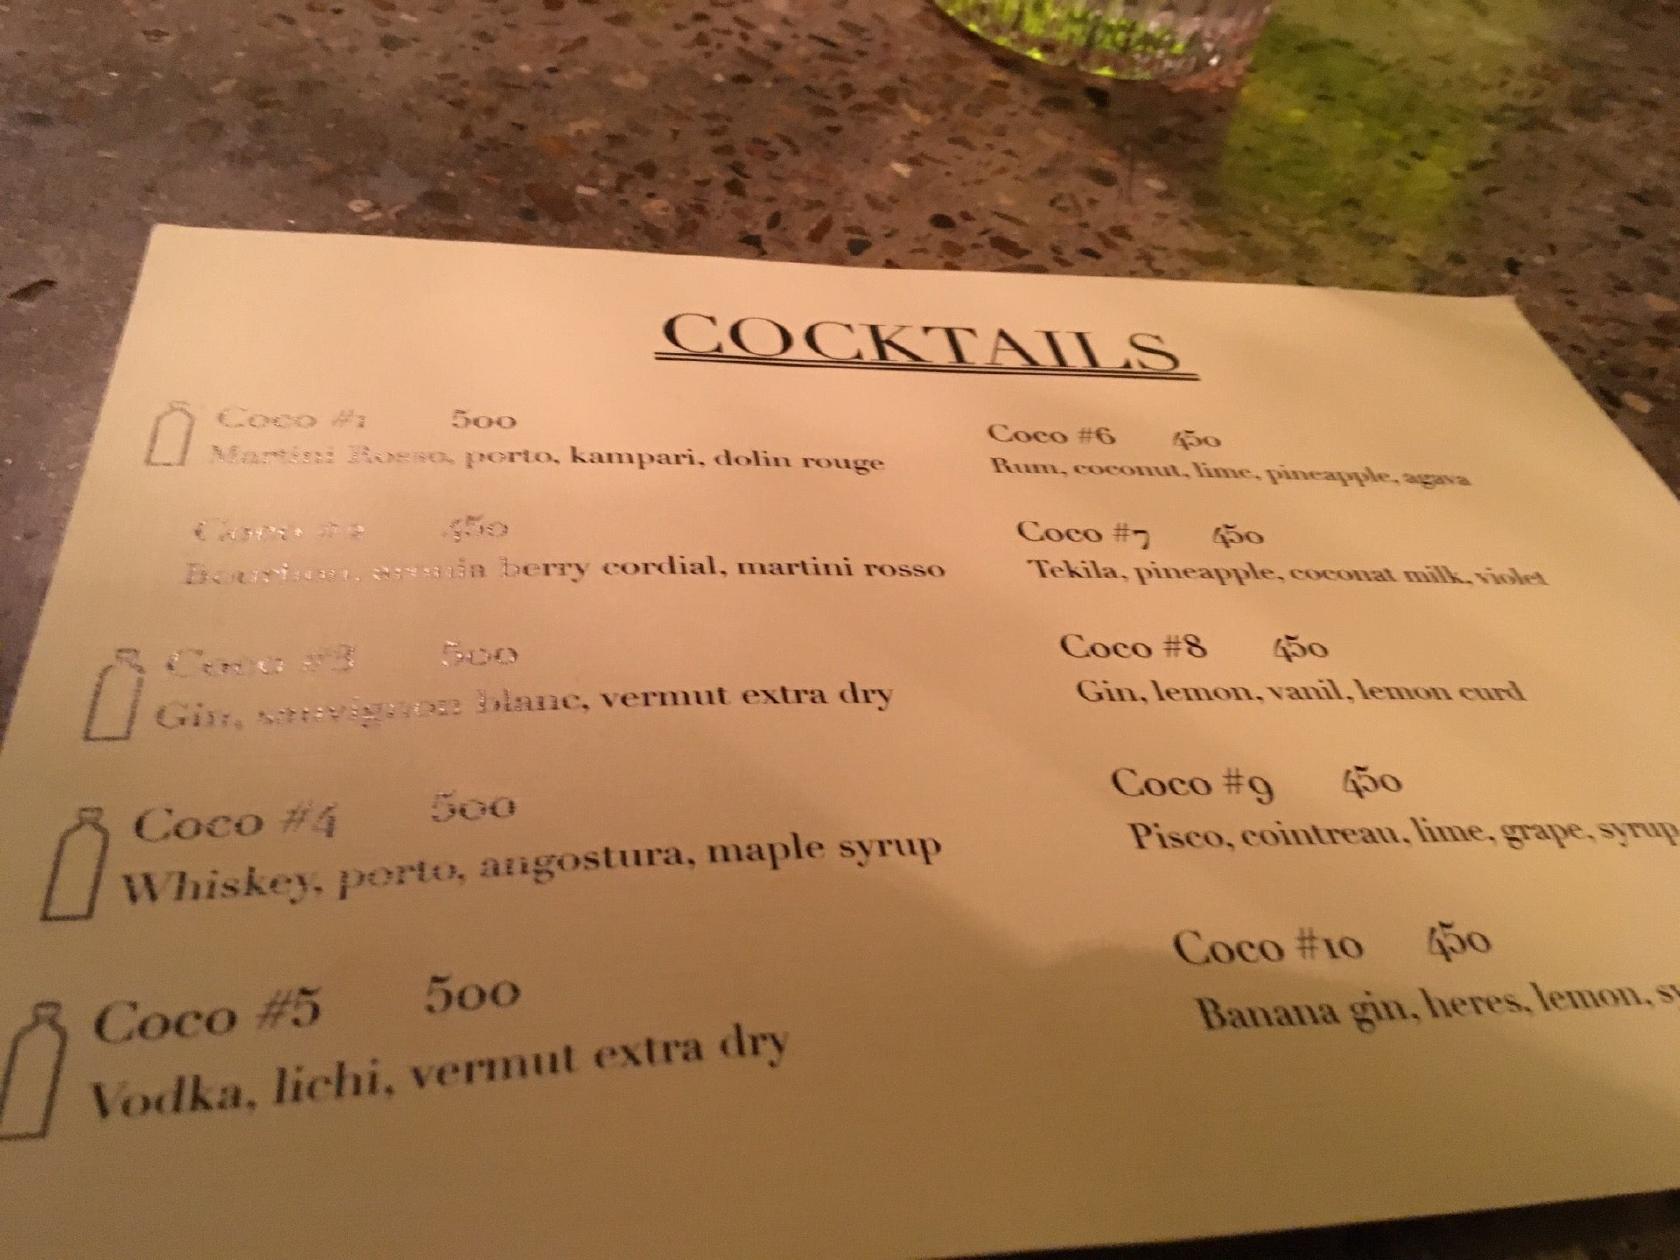 COCKTAILS
Coco #1 500
Martini Rosso, porto, kampari, dolin rouge
Coco #2 450
Bourbon, berry cordial, martini rosso
Coco #3 500
Gin, sauvignon blanc, vermut extra dry
Coco #4 500
Whiskey, porto, angostura, maple syrup
Coco #5 500
Vodka, lichi, vermut extra dry
Coco #6 450
Rum, coconut, lime, pineapple, agava
Coco #7 450
Tekila, pineapple, coconat milk, violet
Coco #8 450
Gin, lemon, vanil, lemon curd
Coco #9 450
Pisco, cointreau, lime, grape, syrup
Coco #10 450
Banana gin, heres, lemon,